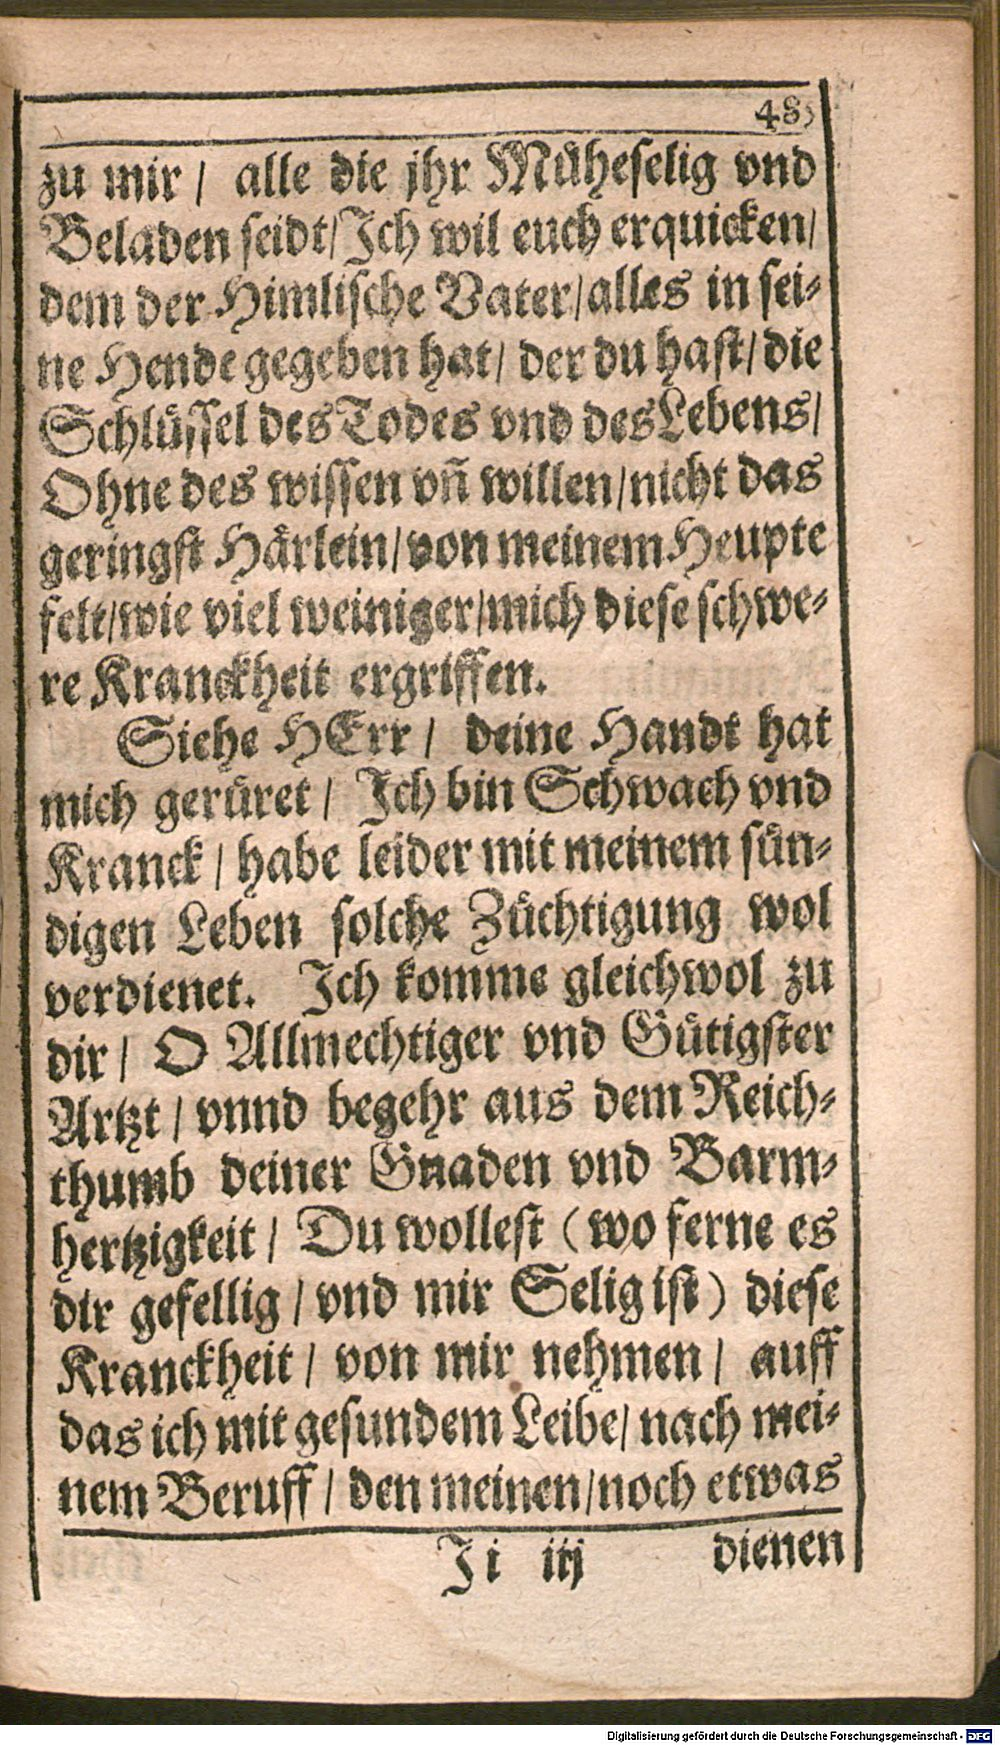 48
zu mir / alle die jhr Müheselig vnd
Beladen seidt/Ich wil euch erquicken/
dem der Himlische Vater/alles in sei-
ne Hende gegeben hat/ der du hast/die
Schlüssel des Todes vnd des Lebens/
Ohne des wissen vñ willen/nicht das
geringst Härlein/von meinem Heupte
felt/wie viel weiniger/mich diese schwe-
re Kranckheit ergriffen.
Siehe HErr / deine Handt hat
mich gerüret / Ich bin Schwach vnd
Kranck / habe leider mit meinem sün-
digen Leben solche Züchtigung wol
verdienet. Ich komme gleichwol zu
dir / O Allmechtiger vnd Gütigster
Artzt / vnnd begehr aus dem Reich-
thumb deiner Gnaden vnd Barm-
hertzigkeit / Du wollest (wo ferne es
dir gefellig / vnd mir Selig ist) diese
Kranckheit / von mir nehmen / auff
das ich mit gesundem Leibe/ nach mei-
nem Beruff / den meinen/noch etwas
Ii iij dienen
Digitalisierung gefördert durch die Deutsche Forschungsgemeinschaft - DFG